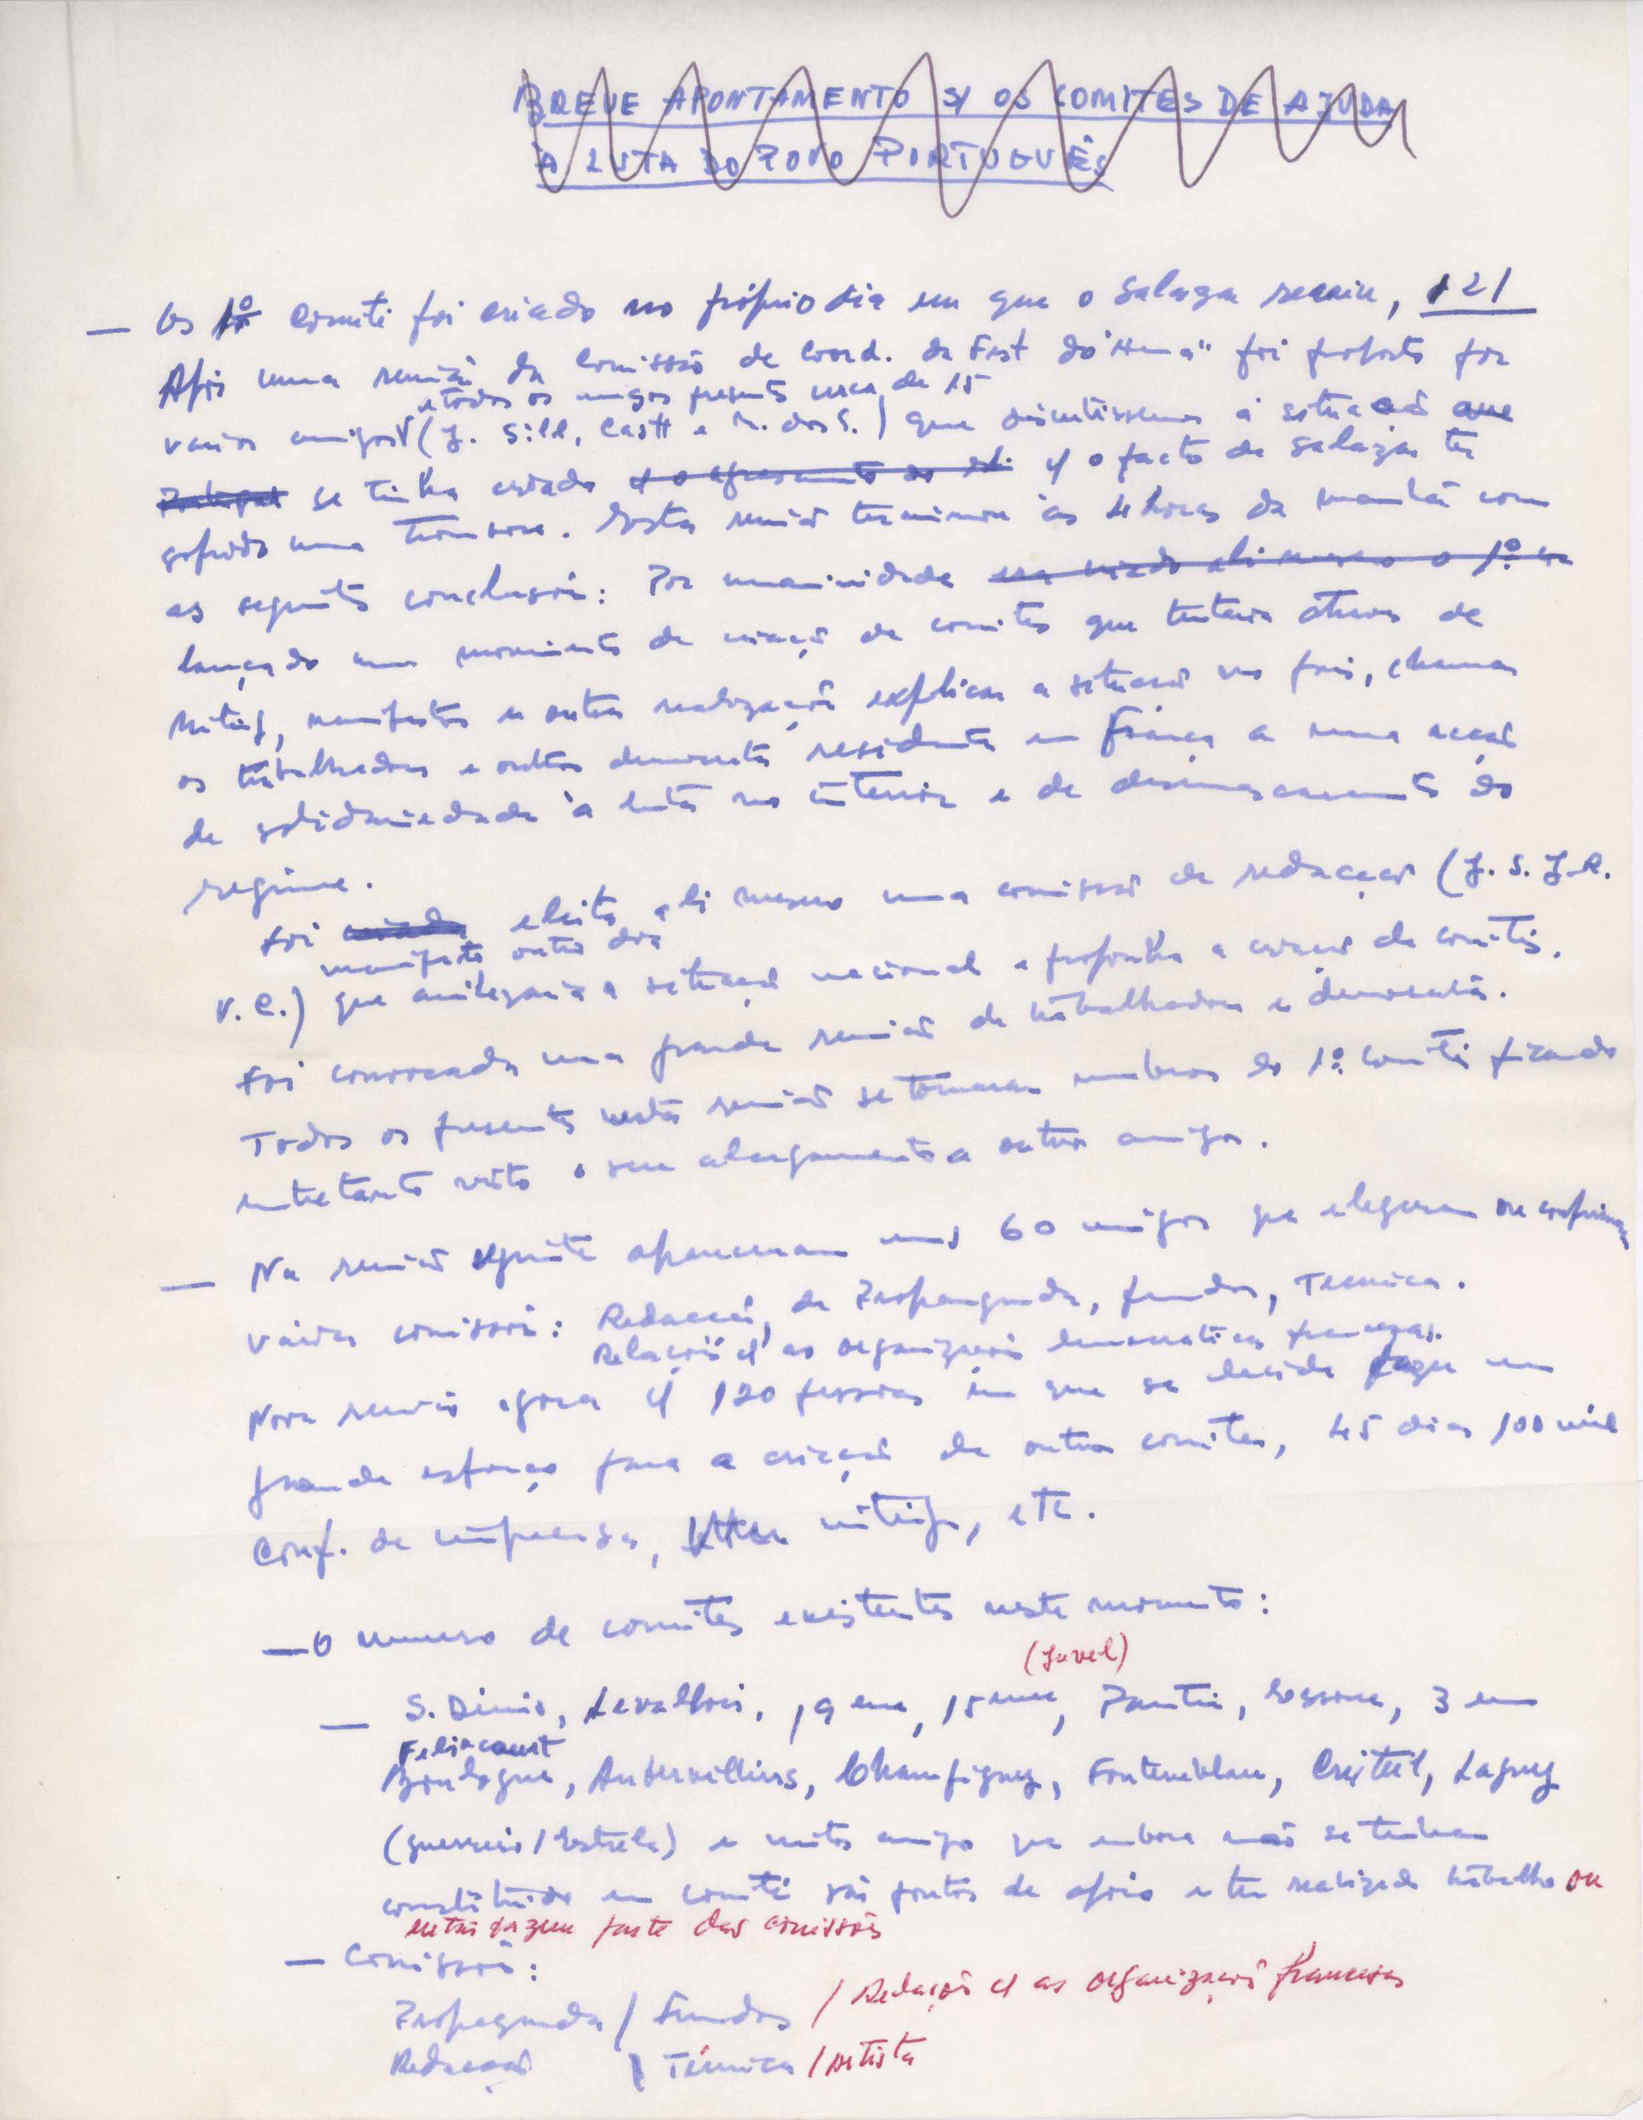 BREVE APONTAMENTO S/ OS COMITÉS DE AJUDA
À LUTA DO POVO PORTUGUÊS
— Os 1º Comité foi criado no próprio dia em que o Salazar
Após uma reunião da Comissão de Coord. da Fest do "Huma" foi proposto por
e todos os amigos presents cerca de 15
varios amigos (J. Sill, Castt e M. dos S.) que discutissemos a situação que
Portugal se tinha criado c/ o facto de Salazar ter
sofrido uma trombose. Esta reunião terminou às 4 horas da manhã com
as seguintes conclusões: Por unanimidade
lançado um movimento de criação de comités que tentem através de
mitings, manifestos e outras realizações explicar a situação no pais, chamar
os trabalhadores e outros democratas residentes em França a uma acção
de solidariedade à luta no interior e de desmascaramento do
regime.
Foi criada eleita ali mesmo uma comissão de redacção (J. S. J. R.
manifesto outro dia
V. C.) que a situação nacional e proponha a criação de comités.
Foi convocada uma grande reunião de trabalhadores e democratas.
Todos os presentes nesta reunião se tornaram membros do 1º. comité ficando
entretanto visto o seu alargamento a outros amigos.
— Na reunião seguinte apareceram uns 60 amigos que elegeram ou
várias comissões: Redacção, de Propaganda, fundos, Tecnica.
Relações c/ as organizações democraticas francezas.
Nova reunião agora c/ 120 pessoas em que se decide um
grande esforço para a criação de outros comités, 45 dias 100 mil
Conf. de imprensa, mitings, etc.
— O numero de comités existentes neste momento:
(Javel)
— S. Dinis, Levallois, 19 eme, 15 eme, Pantin, Essonne, 3 em
Boulogne, Aubervilliers, Champigny, Fontenebleau, Créteil, Lagny
(guerreiro / Estrela) e muitos amigos que embora não se tenham
constituido em comité são pontos de apoio e tem realizado trabalho ou
então fazem parte das comissões
— Comissões:
Propaganda / Fundos / Relações c/ as organizações francesas
Redacção / Técnica / Artista